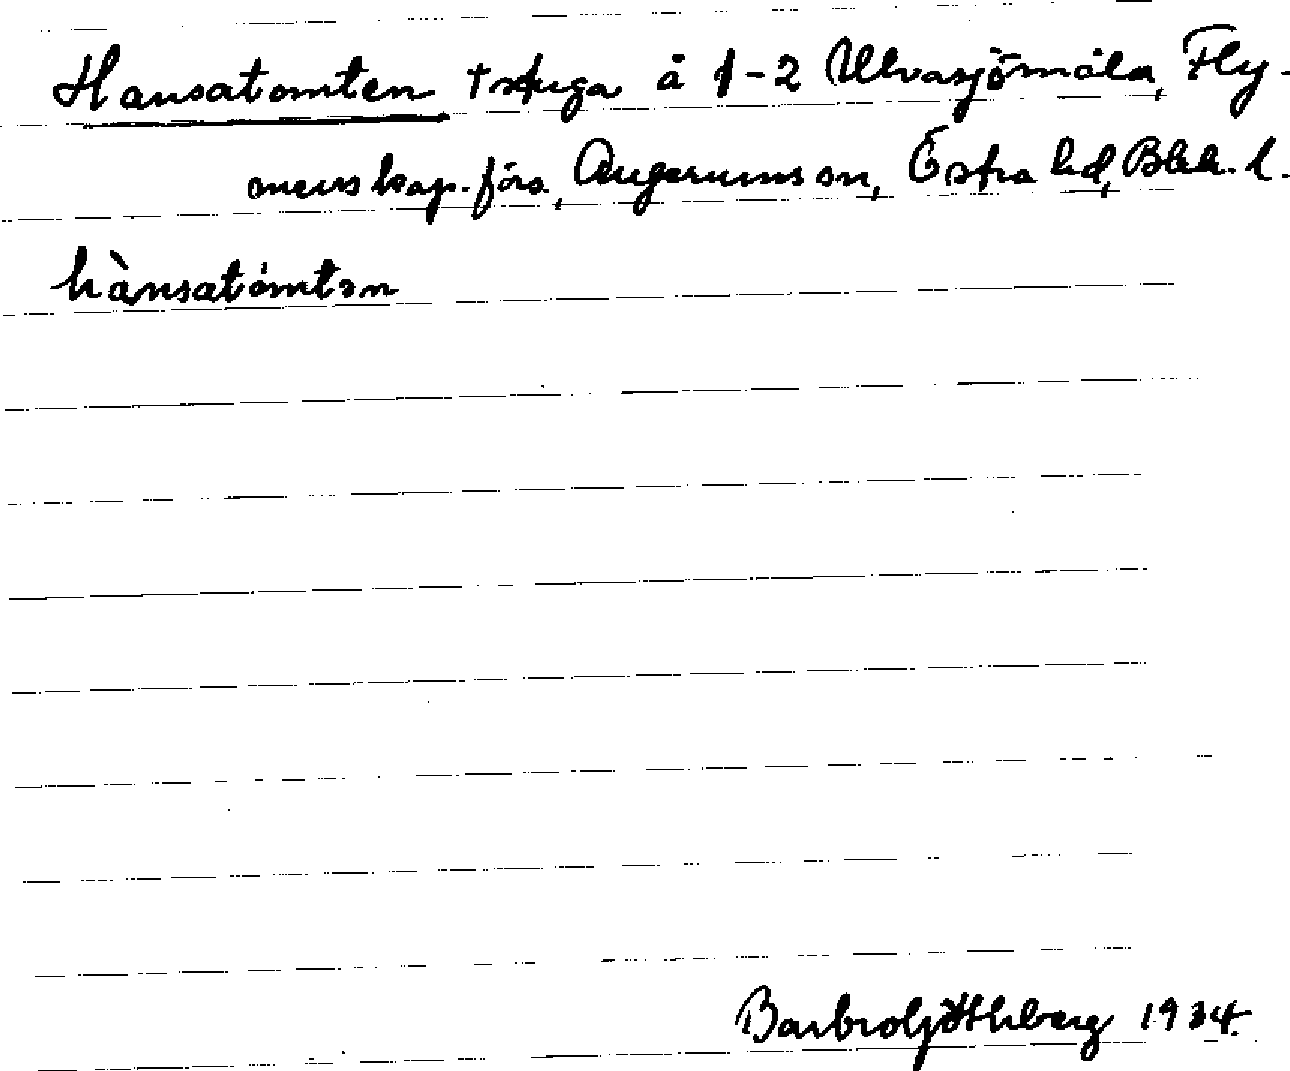 Hansatomten † stuga å 1-2 Ulvasjömåla, Fly-
menskap. förs., Augerums sn, Östra hd, Blek. l.
hànsatómtən
Barbro Götthberg 1934.